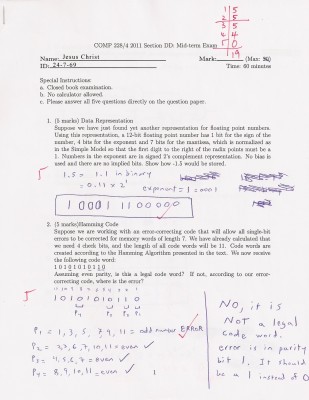 1 5
2 5
3 5
4 4
5 0
19
COMP 228/4 2011 Section DD: Mid-term Exam
Name: Jesus Christ
Mark: (Max: 30)
ID: 24-7-69
Time: 60 minutes
Special Instructions:
a. Closed book examination.
b. No calculator allowed.
c. Please answer all five questions directly on the question paper.
1. (5 marks) Data Representation
Suppose we have just found yet another representation for floating point numbers.
Using this representation, a 12-bit floating point number has 1 bit for the sign of the
number, 4 bits for the exponent and 7 bits for the mantissa, which is normalized as
in the Simple Model so that the first digit to the right of the radix points must be a
1. Numbers in the exponent are in signed 2's complement representation. No bias is
used and there are no implied bits. Show how -1.5 would be stored.
5
1.5 = 1.1 in binary
= 0.11 x 2¹
exponent = 1 = 0001
1 0001 1100000
2. (5 marks)Hamming Code
Suppose we are working with an error-correcting code that will allow all single-bit
errors to be corrected for memory words of length 7. We have already calculated that
we need 4 check bits, and the length of all code words will be 11. Code words are
created according to the Hamming Algorithm presented in the text. We now receive
the following code word:
10101010110
Assuming even parity, is this a legal code word? If not, according to our error-
correcting code, where is the error?
5
11 10 9 8 7 6 5 4 3 2 1
10101010110
P₈ P₄ P₂ P₁
P₁ = 1, 3, 5, 7, 9, 11 = odd number ERROR
P₂ = 2,3,6,7,10,11 = even ✓
P₃ = 4,5,6,7 = even ✓
P₄ = 8,9,10,11 = even ✓
1
No, it is
NOT a legal
code word,
error is in parity
bit 1. It should
be a 1 instead of 0